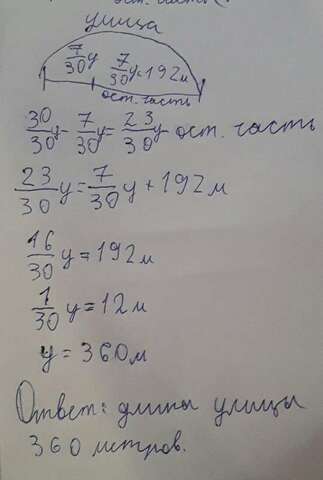 улица
7/30 у 7/30 у+192м
ост. часть
30/30 у - 7/30 у = 23/30 у - ост. часть
23/30 у = 7/30 у + 192 м
16/30 у = 192 м
1/30 у = 12 м
у = 360 м
Ответ: длина улицы
360 метров.